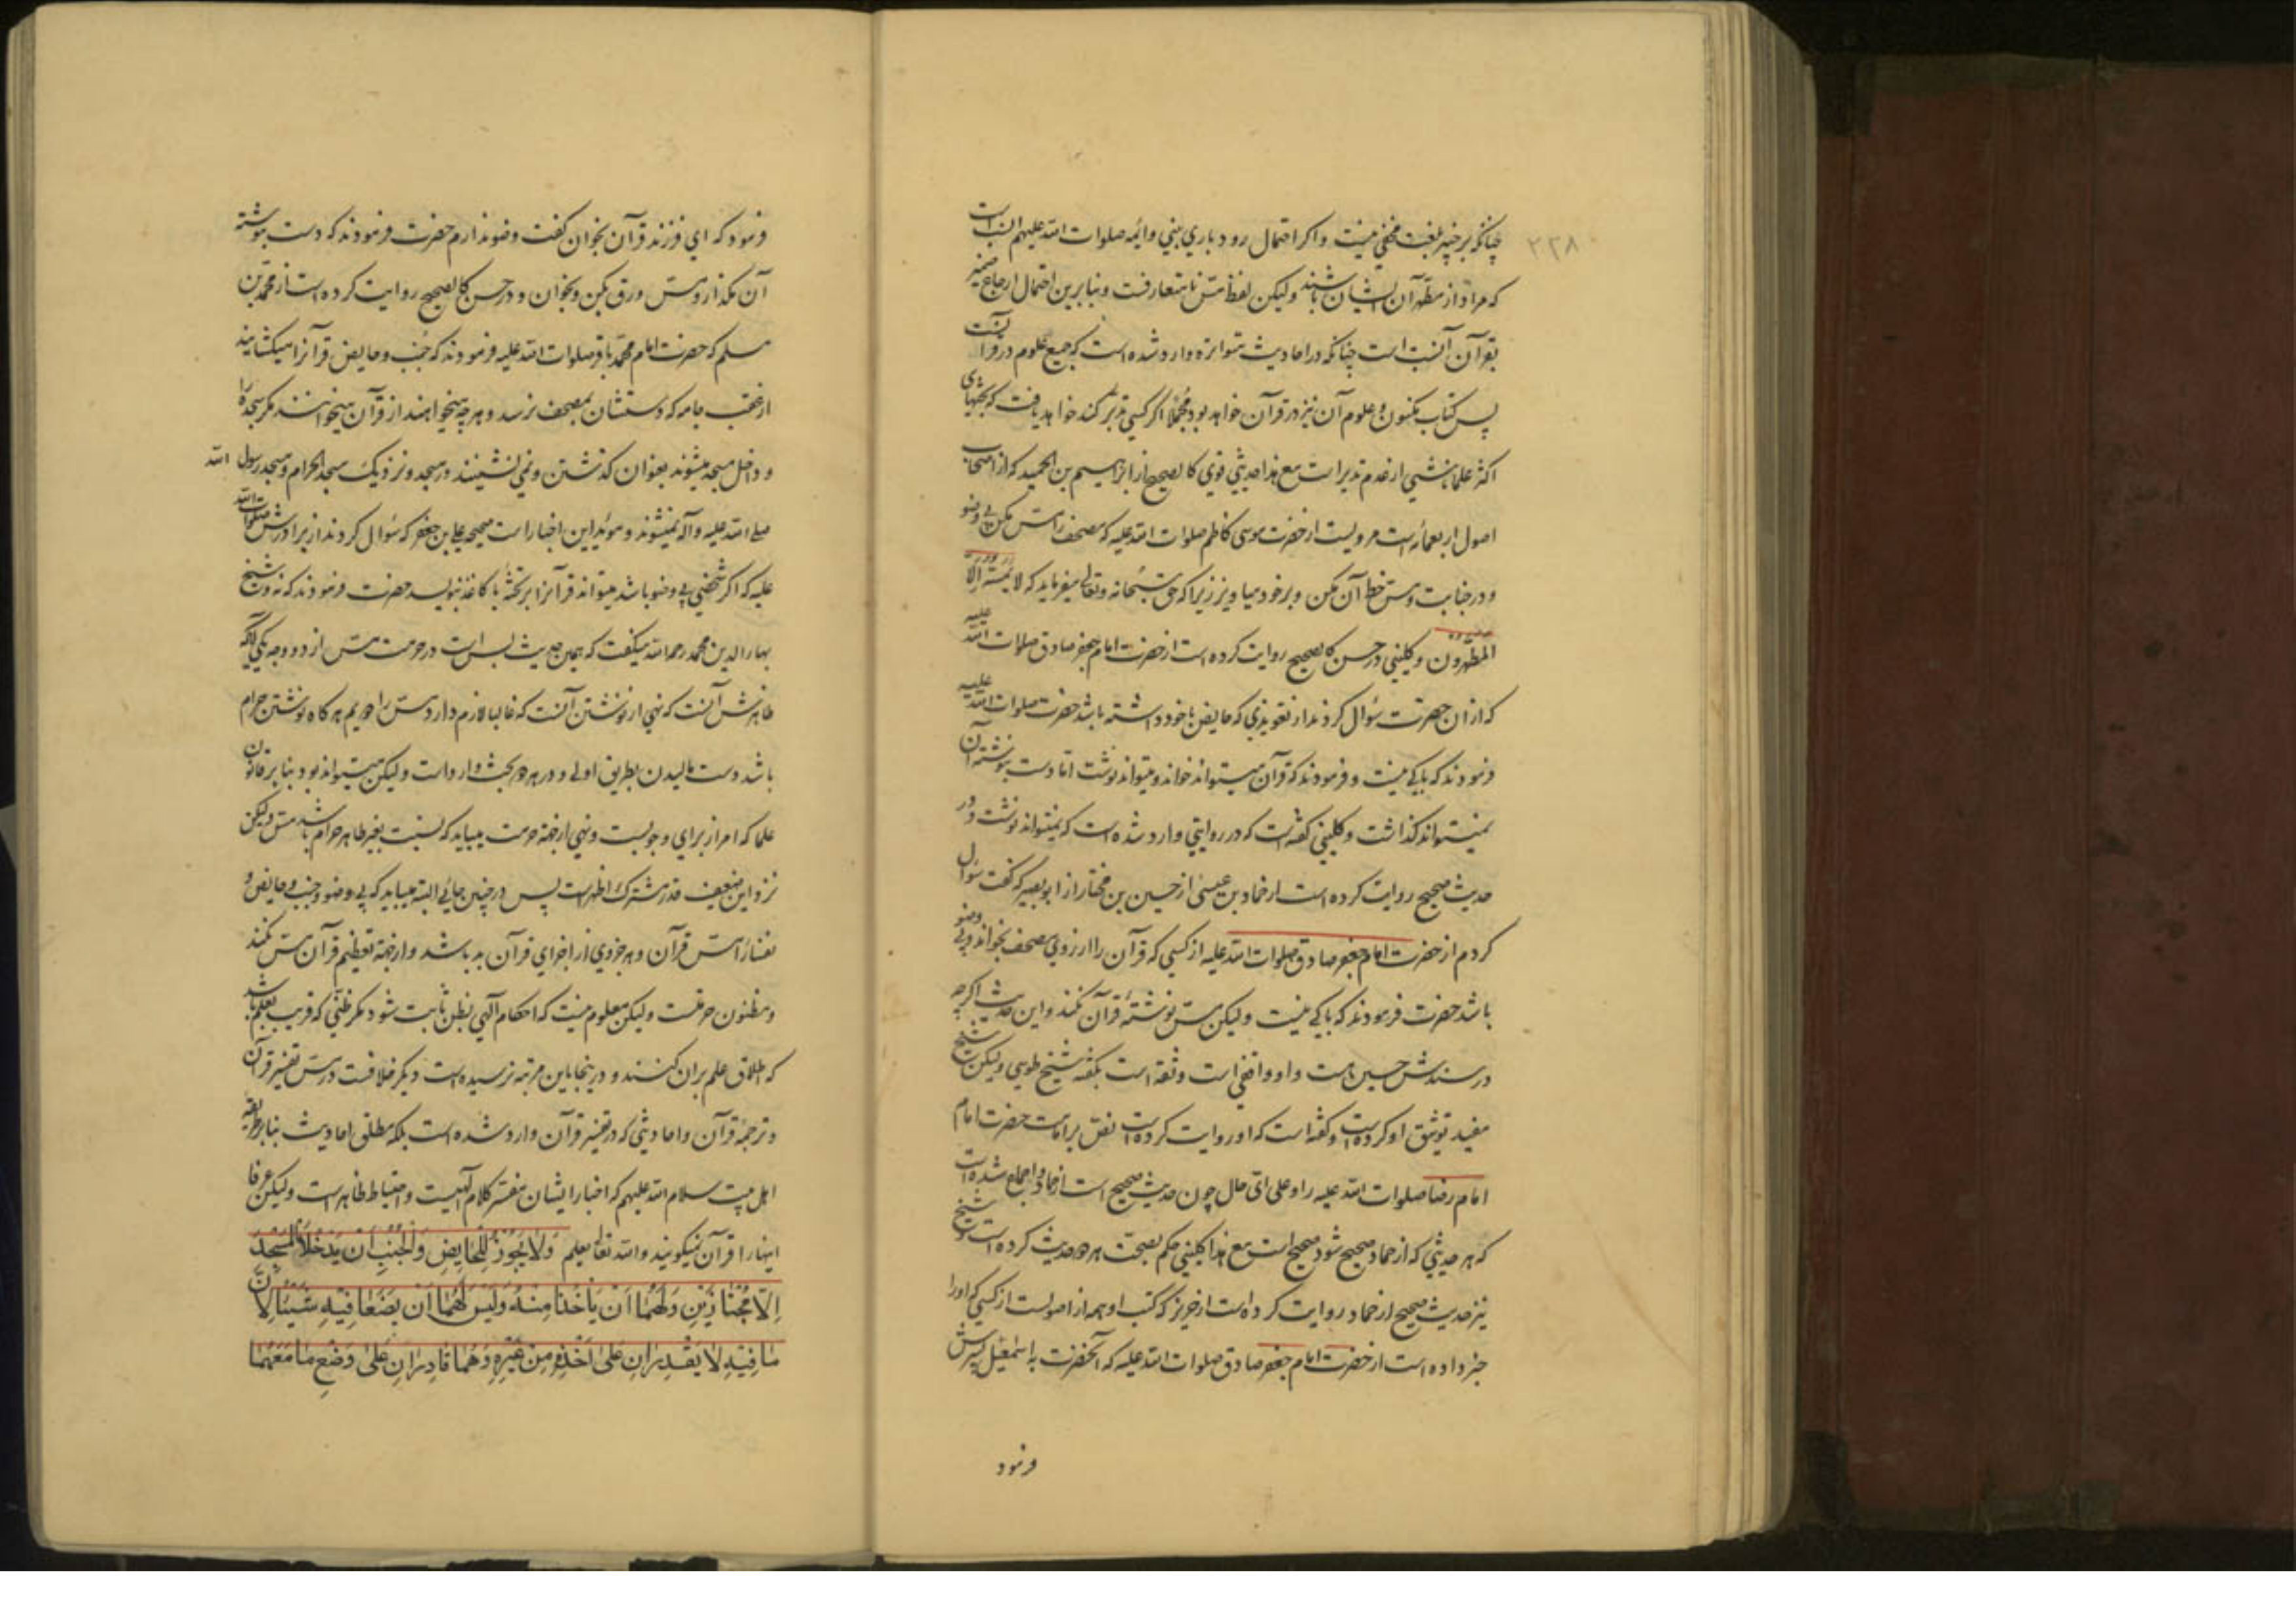 ۲۲۸
چنانکه بر خبیر بلغت مخفی نیست و اکر احتمال رود باری بنی و ائمه صلوات الله علیهم انسب است
که مراد از مطهرّان ایشان باشند ولیکن لفظ مسّ نامتعارفست و بنابرین احتمال ارجاع ضمیر
بقرآن انسب است چنانکه در احادیث متواتره وارد شده است که جمیع علوم در قرآنست
پس کتاب مکنون و علوم آن نیز در قرآن خواهد بود مجملاً اکر کسی تدبّر کند خواهد یافت که بحثهای
اکثر علما ناشی از عدم تدبر است مع هذا حدیثی قوی کالصحیح از ابراهیم بن الحمید که از اصحاب
اصول اربعمائه است مرویست از حضرت موسی کاظم صلوات الله علیه که مصحف را مسّ مکن بی وضو
و در جنابت و مسّ خط آن مکن و بر خود میاویز زیرا که حق سبحانه و تعالی میفرماید که لا یمسّه الّا
المطهّرون و کلینی در حسن کالصحیح روایت کرده است از حضرت امام جعفر صادق صلوات الله علیه
که از ان حضرت سؤال کردند از تعویذی که حایض با خود داشته باشد حضرت صلوات الله علیه
فرمودند که باکی نیست و فرمودند که قرآن میتواند خواند و میتواند نوشت اما دست بنوشته آن
نمیتواند کذاشت و کلینی کفته است که در روایتی وارد شده است که نمیتواند نوشت و در
حدیث صحیح روایت کرده است از حماد بن عیسی از حسین بن مختار از ابو بصیر که کفت سؤال
کردم از حضرت امام جعفر صادق صلوات الله علیه از کسی که قرآن را از روی مصحف بخواند و بی وضو
باشد حضرت فرمودند که باکی نیست ولیکن مسّ نوشتهٔ قرآن نکند و این حدیث اکرچه
در سندش حسین هست و او واقفی است و ثقه است بکفته شیخ طوسی ولیکن شیخ
مفید توثیق او کرده است و کفته است که او روایت کرده است نصّ بر امامت حضرت امام
امام رضا صلوات الله علیه را و علی ایّ حال چون حدیث صحیح است از حماد و اجماع شده است
که هر حدیثی که از حماد صحیح شود صحیح است مع هذا کلینی حکم بصحّت هر دو حدیث کرده است و شیخ
نیز حدیث صحیح از حماد روایت کرده است از حریز که کتب او همه از اصولست از کسی که او را
خبر داده است از حضرت امام جعفر صادق صلوات الله علیه که آنحضرت به اسمعیل پسرش
فرمود
فرمود که ای فرزند قرآن بخوان کفت وضو ندارم حضرت فرمودند که دست بنوشته
آن مکذار و مسّ ورق بکن و بخوان و در حسن کالصحیح روایت کرده است از محمد بن
مسلم که حضرت امام محمّد باقر صلوات الله علیه فرمودند که جنب و حایض قرآنرا میکشایند
از عقب جامه که دستشان بمصحف نرسد و هر چه میخواهند از قرآن میخوانند مکر سجده را
و داخل مسجد میشوند بعنوان کذشتن و نمی نشینند در مسجد و نزدیک مسجد الحرام و مسجد رسول الله
صلی الله علیه و آله نمیشوند و مؤید این اخبار است صحیحه علی بن جعفر که سؤال کردند از برادرش صلوات الله
علیه که اکر شخصی بی وضو باشد میتواند قرآنرا بر تخته یا کاغذ بنویسد حضرت فرمودند که نه و شیخ
بهاء الدین محمد رحمه الله میکفت که همین حدیث بس است در حرمت مسّ از دو وجه یکی آنکه
ظاهرش آنست که نهی از نوشتن آنست که غالبا لازم دارد مسّ را دویم هر کاه نوشتن حرام
باشد دست مالیدن بطریق اولی و در هر دو بحث وارد است ولیکن میتواند بود بنا بر قانون
علما که امر از برای وجوبست و نهی از جهة حرمت میباید که نسبت بغیر طاهر حرام باشد مسّ ولیکن
نزد این ضعیف قدر مشترک اظهر است پس در چنین جائی البته میباید که بی وضو و جنب و حایض و
نفساء مسّ قرآن و هر جزوی از اجزای قرآن بد باشد و از جهة تعظیم قرآن مسّ نکند
و مظنون حرمتست ولیکن معلوم نیست که احکام آلهی بظن ثابت شود مکر ظنّی که قریب بعلم باشد
که اطلاق علم بران کنند و در اینجا باین مرتبه نرسیده است دیکر خلافست در مسّ تفسیر قرآن
و ترجمهٔ قرآن و احادیثی که در تفسیر قرآن وارد شده است بلکه مطلق احادیث بنا بر طریقه
اهل بیت سلام الله علیهم که اخبار ایشان مفسّر کلام آلهیست و احتیاط ظاهر است ولیکن عرفا
اینها را قرآن نمیکویند والله تعالی یعلم وَلا یَجُوزُ لِلْحَایِضِ وَالْجُنُبِ اَنْ یَدْخُلاَ الْمَسْجِدَ
اِلّا مُجْتٰازَیْنِ وَلَهُمٰا اَنْ یَأخُذٰا مِنْهُ وَلَیْسَ لَهُمٰا اَنْ یَضَعٰا فِیْهِ شَیْئًا لِاَنَّ
مٰا فِیْهِ لاٰ یَقْدِرٰانِ عَلیٰ اَخْذِهِ مِنْ غَیْرِهِ وَهُمٰا قٰادِرٰانِ عَلیٰ وَضْعِ مٰا مَعَهُمٰا